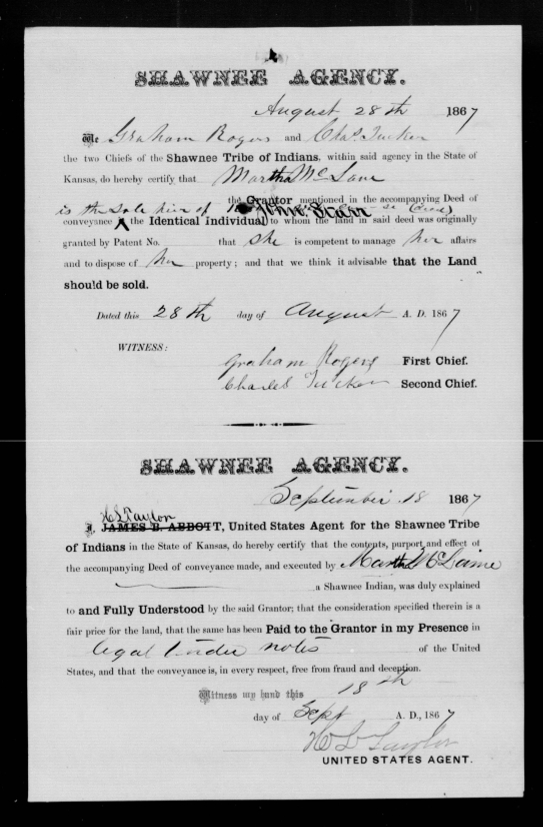 SHAWNEE AGENCY.
August 28th 1867
We Graham Rogers and Chas. Tucker
the two Chiefs of the Shawnee Tribe of Indians, within said agency in the State of
Kansas, do hereby certify that Martha McLane
the Grantor mentioned in the accompanying Deed of
is the sole heir of
conveyance the Identical Individual to whom the land in said deed was originally
granted by Patent No. that she is competent to manage her affairs
and to dispose of her property; and that we think it advisable that the Land
should be sold.
Dated this 28th day of August A. D. 1867
WITNESS:
Graham Rogers First Chief.
Charles Tucker Second Chief.
SHAWNEE AGENCY.
September 18 1867
H L Taylor
I, JAMES B. ABBOTT, United States Agent for the Shawnee Tribe
of Indians in the State of Kansas, do hereby certify that the contents, purport and effect of
the accompanying Deed of conveyance made, and executed by Martha McLaine
a Shawnee Indian, was duly explained
to and Fully Understood by the said Grantor; that the consideration specified therein is a
fair price for the land, that the same has been Paid to the Grantor in my Presence in
legal tender notes of the United
States, and that the conveyance is, in every respect, free from fraud and deception.
Witness my hand this 18th
day of Sept A. D., 1867
H L Taylor
UNITED STATES AGENT.